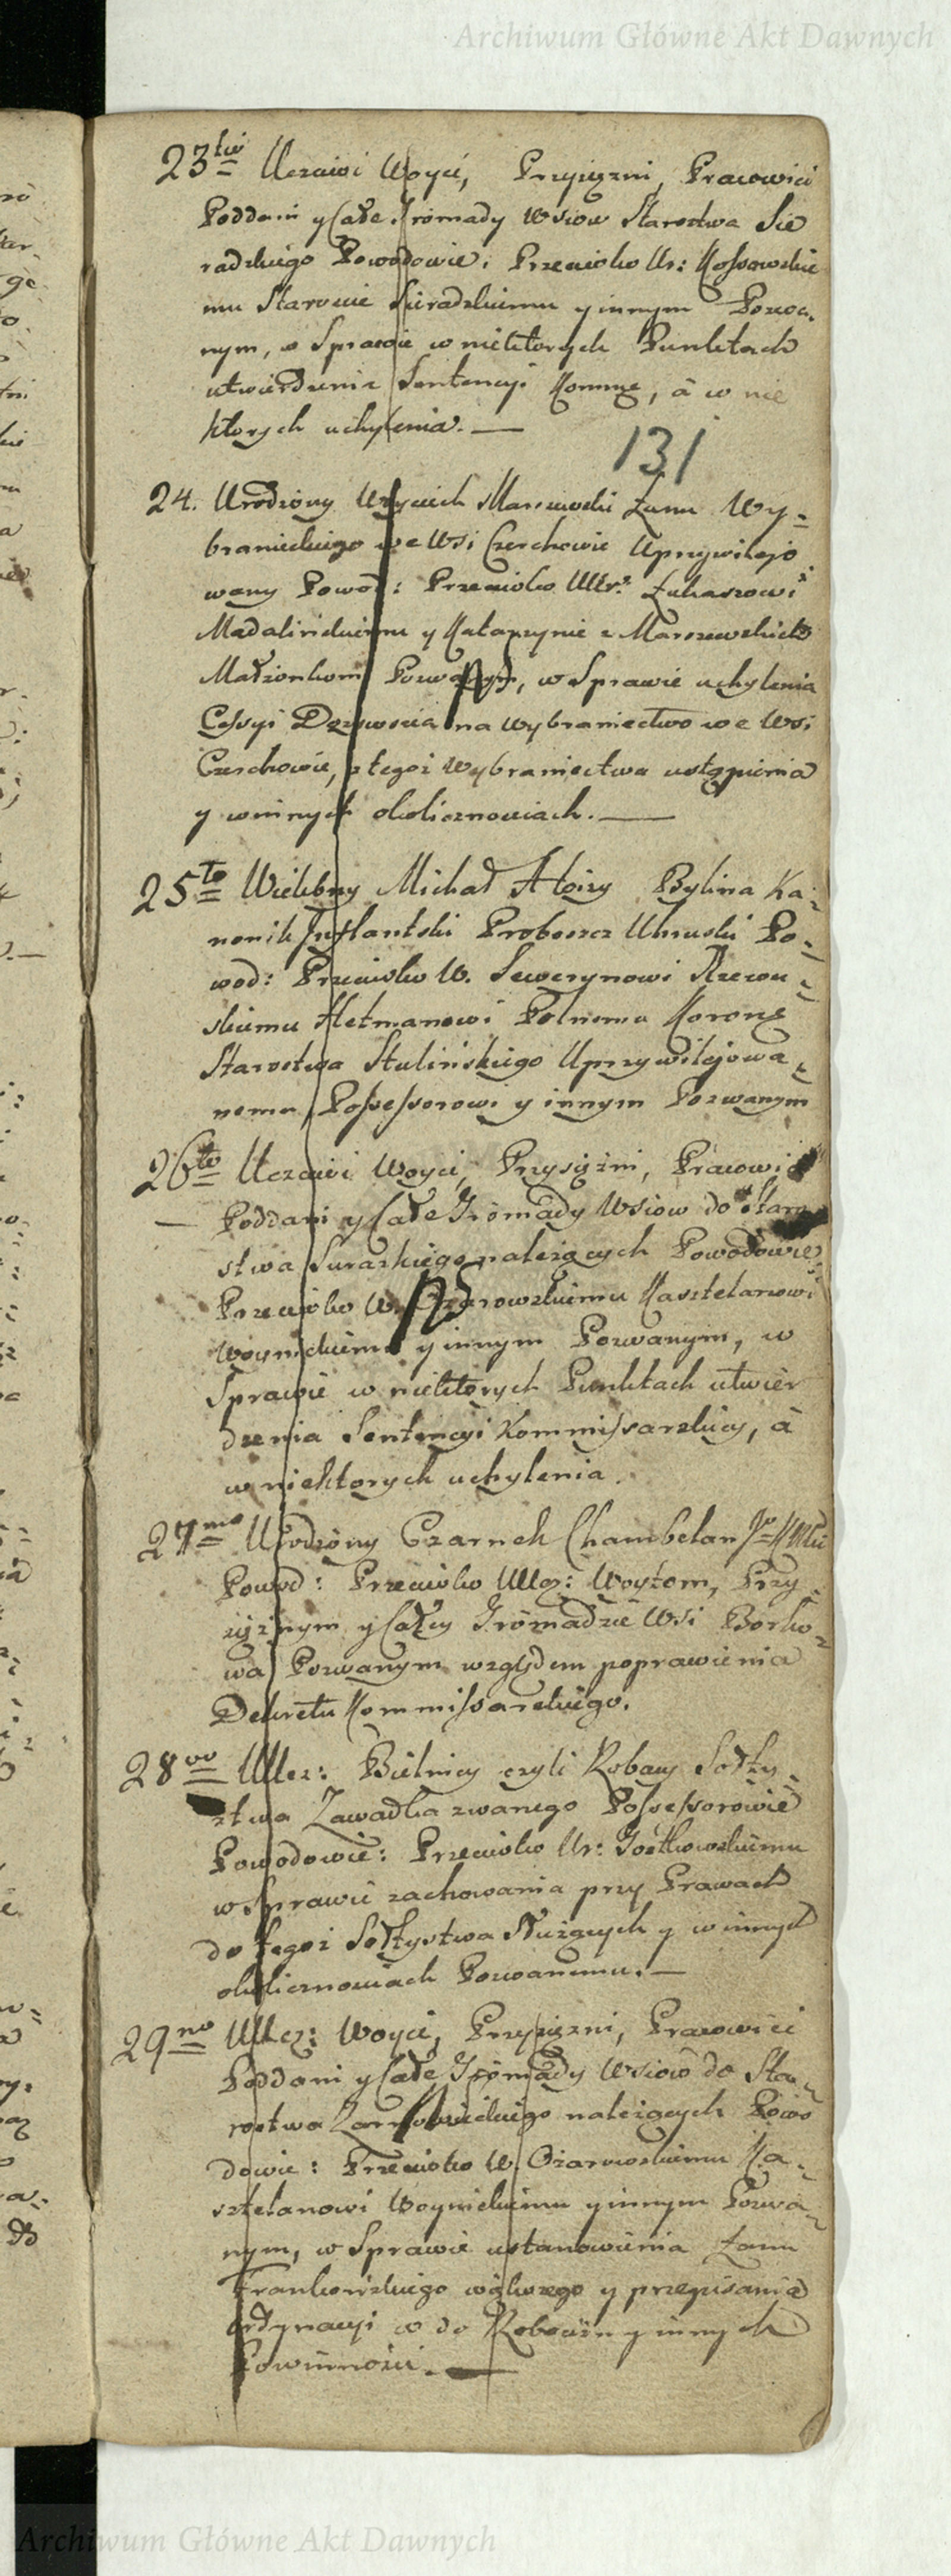 Archiwum Główne Akt Dawnych
23tio Uczciwi Woyci, Przysiężni, Pracowici
Poddani y Całe Gromady Wsiow Starostwa Sie
radzkiego Powodowie: Przeciwko Ur: Kossowskie
mu Staroscie Sieradzkiemu y innym Pozwa-
nym, w Sprawie w niektorych Punktach
utwierdzenia Sentencyi Kommis, à w nie
ktorych uchylenia. —
131
24. Urodzony Woyciech Marszewski Łanu Wy-
branieckiego we Wsi Czerchowie Uprzywilejo
wany Powod: Przeciwko UUr: Łukaszowi
Madalinskiemu y Katarzynie z Marszewskich
Małżonkom Pozwanym, w Sprawie uchylenia
Cessyi Dożywocia na Wybraniectwo we Wsi
Czerchowie, z tegoż Wybraniectwa ustąpienia
y w innych okolicznosciach. —
25to Wielebny Michał Aloizy Bylina Ka-
nonik Inflantski Proboszcz Uhruski Po-
wod: Przeciwko W. Sewerynowi Rzewu-
skiemu Hetmanowi Polnemu Koronę
Starostwa Stulińskiego Uprzywilejowa-
nemu Possessorowi y innym Pozwanym
26to Uczciwi Woyci, Przysiężni, Pracowici
— Poddani y Całe Gromady Wsiow do Staro
stwa Suraskiego należących Powodowie
Przeciwko W. Ożarowskiemu Kasztelanowi
Woynickiemu y innym Pozwanym, w
Sprawie w niektorych Punktach utwier
dzenia Sentencyi Kommissarskiey, à
w niektorych uchylenia.
27mo Urodzony Czarnek Chambelan JKMci
Powod: Przeciwko UUcz: Woytom, Przy-
siężnym y Całey Gromadzie Wsi Borko-
wa Pozwanym względem poprawienia
Dekretu Kommissarskiego.
28vo UUcz: Bielnicy czyli Robacy Sołty-
stwa Zawadka zwanego Possessorowie
Powodowie: Przeciwko Ur: Gostkowskiemu
w Sprawie zachowania przy Prawach
do tegoż Sołtystwa Służących y w innych
okolicznosciach Pozwanemu. —
29no UUcz: Woyci, Przysiężni, Pracowici
Poddani y Całe Gromady Wsiow do Sta-
rostwa należących Powo
dowie: Przeciwko W. Ożarowskiemu Ka-
sztelanowi Woynickiemu y innym Pozwa-
nym, w Sprawie ustanowienia Łanu
Frankońskiego y przepisania
ordynacyi w do Robocizn y innych
Powinności. —
Archiwum Główne Akt Dawnych